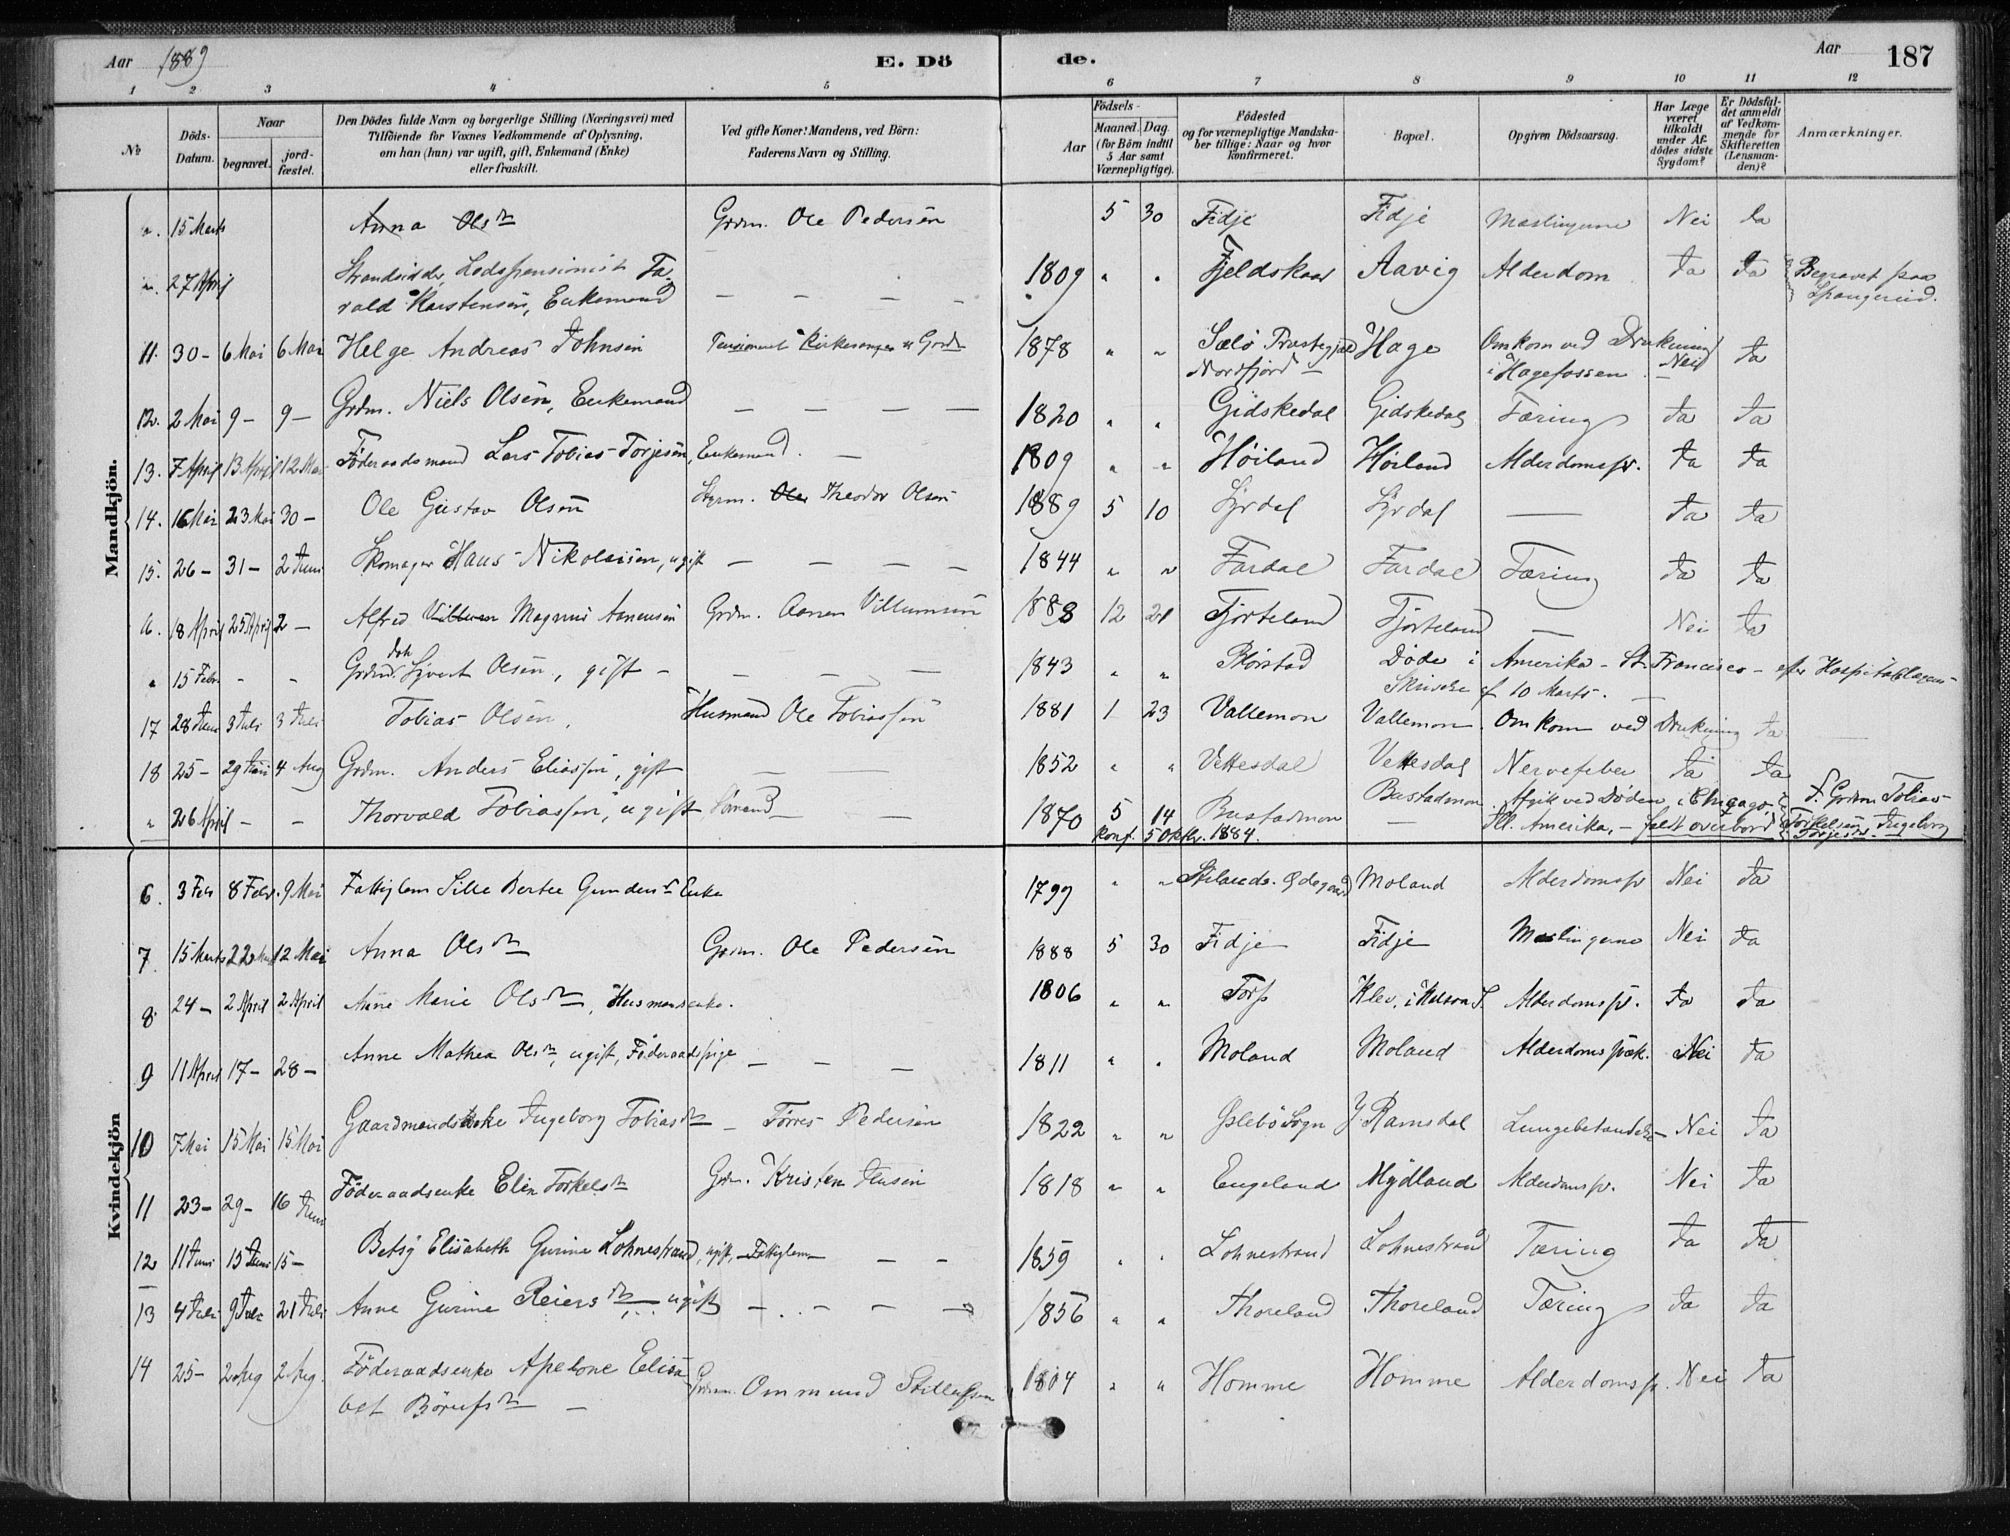 Aar 1889 E. Dö de. Aar 187
1 2 3 4 5 6 7 8 9 10 11 12
№ Döds-Datum. Naar begravet. jord-fæstet. Den Dödes fulde Navn og borgerlige Stilling (Næringsvei) med Tilföiende for Voxnes Vedkommende af Oplysning, om han (hun) var ugift, gift, Enkemand (Enke) eller fraskilt. Ved gifte Koner: Mandens, ved Börn: Faderens Navn og Stilling. Födsels- Aar Maaned. Dag. (for Börn indtil 5 Aar samt Værnepligtige). Födested og for værnepligtige Mandska-ber tillige: Naar og hvor konfirmeret. Bopæl. Opgiven Dödsaarsag. Har Læge været tilkaldt under Af-dödes sidste Sygdom? Er Dödsfal-det anmeldt af Vedkom-mende for Skifteretten (Lensman-den)? Anmærkninger.
Mandkjön.
". 15 Marts Anna Olsdtr Grdm. Ole Pedersen 5 30 Fidje Fidje Mæslingerne Nei Ja
". 27 April Strandsidder, Lodspensionist Ta-
rald Karstensen, Enkemand — — — — 1809 " " Fjeldskaar Aavig Alderdom Ja Ja Begravet paa
Spangereid.
11. 30 - 6 Mai 6 Mai Helge Andreas Johnsen Pensioneret Kirkesanger 1878 " " Sælø Præstegjæld Nordfjord Hage Omkom ved Drukning
i Hagefossen. Nei Ja
12. 2 Mai 9 - 9 - Grdm. Niels Olsen, Enkemand — — — — 1820 " " Gidskedal Gidskedal Tæring Ja Ja
13. 7 April 13 April 12 Mai Föderaadsmand Lars Tobias Torjesen, Enkemand. — 1809 " " Høiland Høiland Alderdomssv. Ja Ja
14. 16 Mai 23 Mai 30 - Ole Gustav Olsen Styrm. Ole Theodor Olsen 1889 5 10 Lyrdal Lyrdal — Ja Ja
15. 26 - 31 - 2 Juni Skomager Hans Nikolaisen, ugift — — — — 1844 " " Fardal Fardal Tæring Ja Ja
16. 18 April 25 April 2 - Alfred Villum Magnus Aanensen Grdm. Aanen Villumsen 1888 12 21 Fjorteland Fjorteland — Nei Ja
" 15 Febr. - - Grdmd. Sjvert Olsen, gift - — — — 1843 " " Röistad Døde i Amerika - St. Francisco - efter Hospitalslægens
Skrivelse af 10 Marts.
17 28 Juni 3 Juli 3 Juli Tobias Olsen, Husmand Ole Tobiassen 1881 1 23 Vallemon Vallemon Omkom ved Drukning Ja
18 25 - 29 Juni 4 Aug Grdm. Anders Eliassen, gift — — 1852 " " Vettesdal Vettesdal Nervefeber Ja Ja
" 26 April - - Thorvald Tobiassen, ugift Sömand — — 1870 5 14 Bustadmon Bustadmon. Afgik ved Døden i Chicago, F. Grdm Tobias
konf. 5 Oktbr. 1884. — Ill. Amerika, - faldt overbord Torkelsen Ingeborg
Torjesdtr.
Kvindekjön
6. 3 Feb 8 Febr. 9 Mai Fattiglem Sille Bertee Gundersdtr Enke 1799 " " Stilands. Ødegaard Moland Alderdomssv Nei Ja
7. 15 Marts 22 Marts 12 Mai Anna Olsdtr Grdm. Ole Pedersen 1888 5 30 Fidje Fidje Mæslingerne Nei Ja
8. 24 - 2 April 2 April Anne Marie Olsdtr, Husmandsenke. 1806 " " Torp Klev, i Halsaa S. Alderdomssv. Ja Ja
9 11 April 17 - 28 - Anne Mathea Olsdtr, ugift, Föderaadspige — — — 1811 " " Moland Moland Alderdomssvæk. Nei Ja
10 7 Mai 15 Mai 15 Mai Gaardmandsenke Ingeborg Tobiasdtr - Tørres Pedersen 1822 " " Øslebö Sogn Y. Ramsdal Lungebetændelse - Nei Ja
11 23 - 29 - 16 Juni Föderaadsenke Elen Torkelsdtr Grdm. Kristen Jensen 1818 " " Engeland Mydland Alderdomssv. Nei Ja
12 11 Juni 15 Juni 15 - Betsy Elisabeth Gurine Lohnestrand, ugift, - Fattiglem — — 1859 " " Lohnestrand Lohnestrand Tæring Ja Ja
13 4 Juli 9 Juli 21 Juli Anne Gurine Reiersdtr ugift — — — — 1856 " " Thoreland Thoreland Tæring Ja Ja
14 25 - 2 Aug 2 Aug. Föderaadsenke Apelone Elisa-
bet Börufsdtr — Grdm. Ommund Stillufsen 1804 " " Homme Homme Alderdomssv. Nei Ja